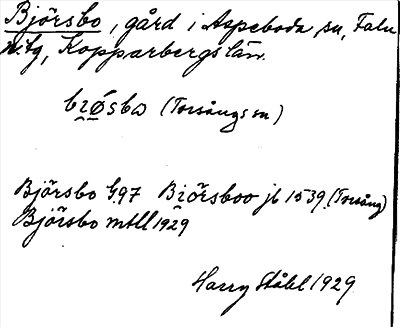 Björsbo, gård i Aspeboda sn, Falu
n. tg, Kopparbergs län.
(Torsångs sn)
Björsbo G97 Biörsboo jb 1539 (Torsång)
Björsbo mtll 1929
Harry Ståhl 1929